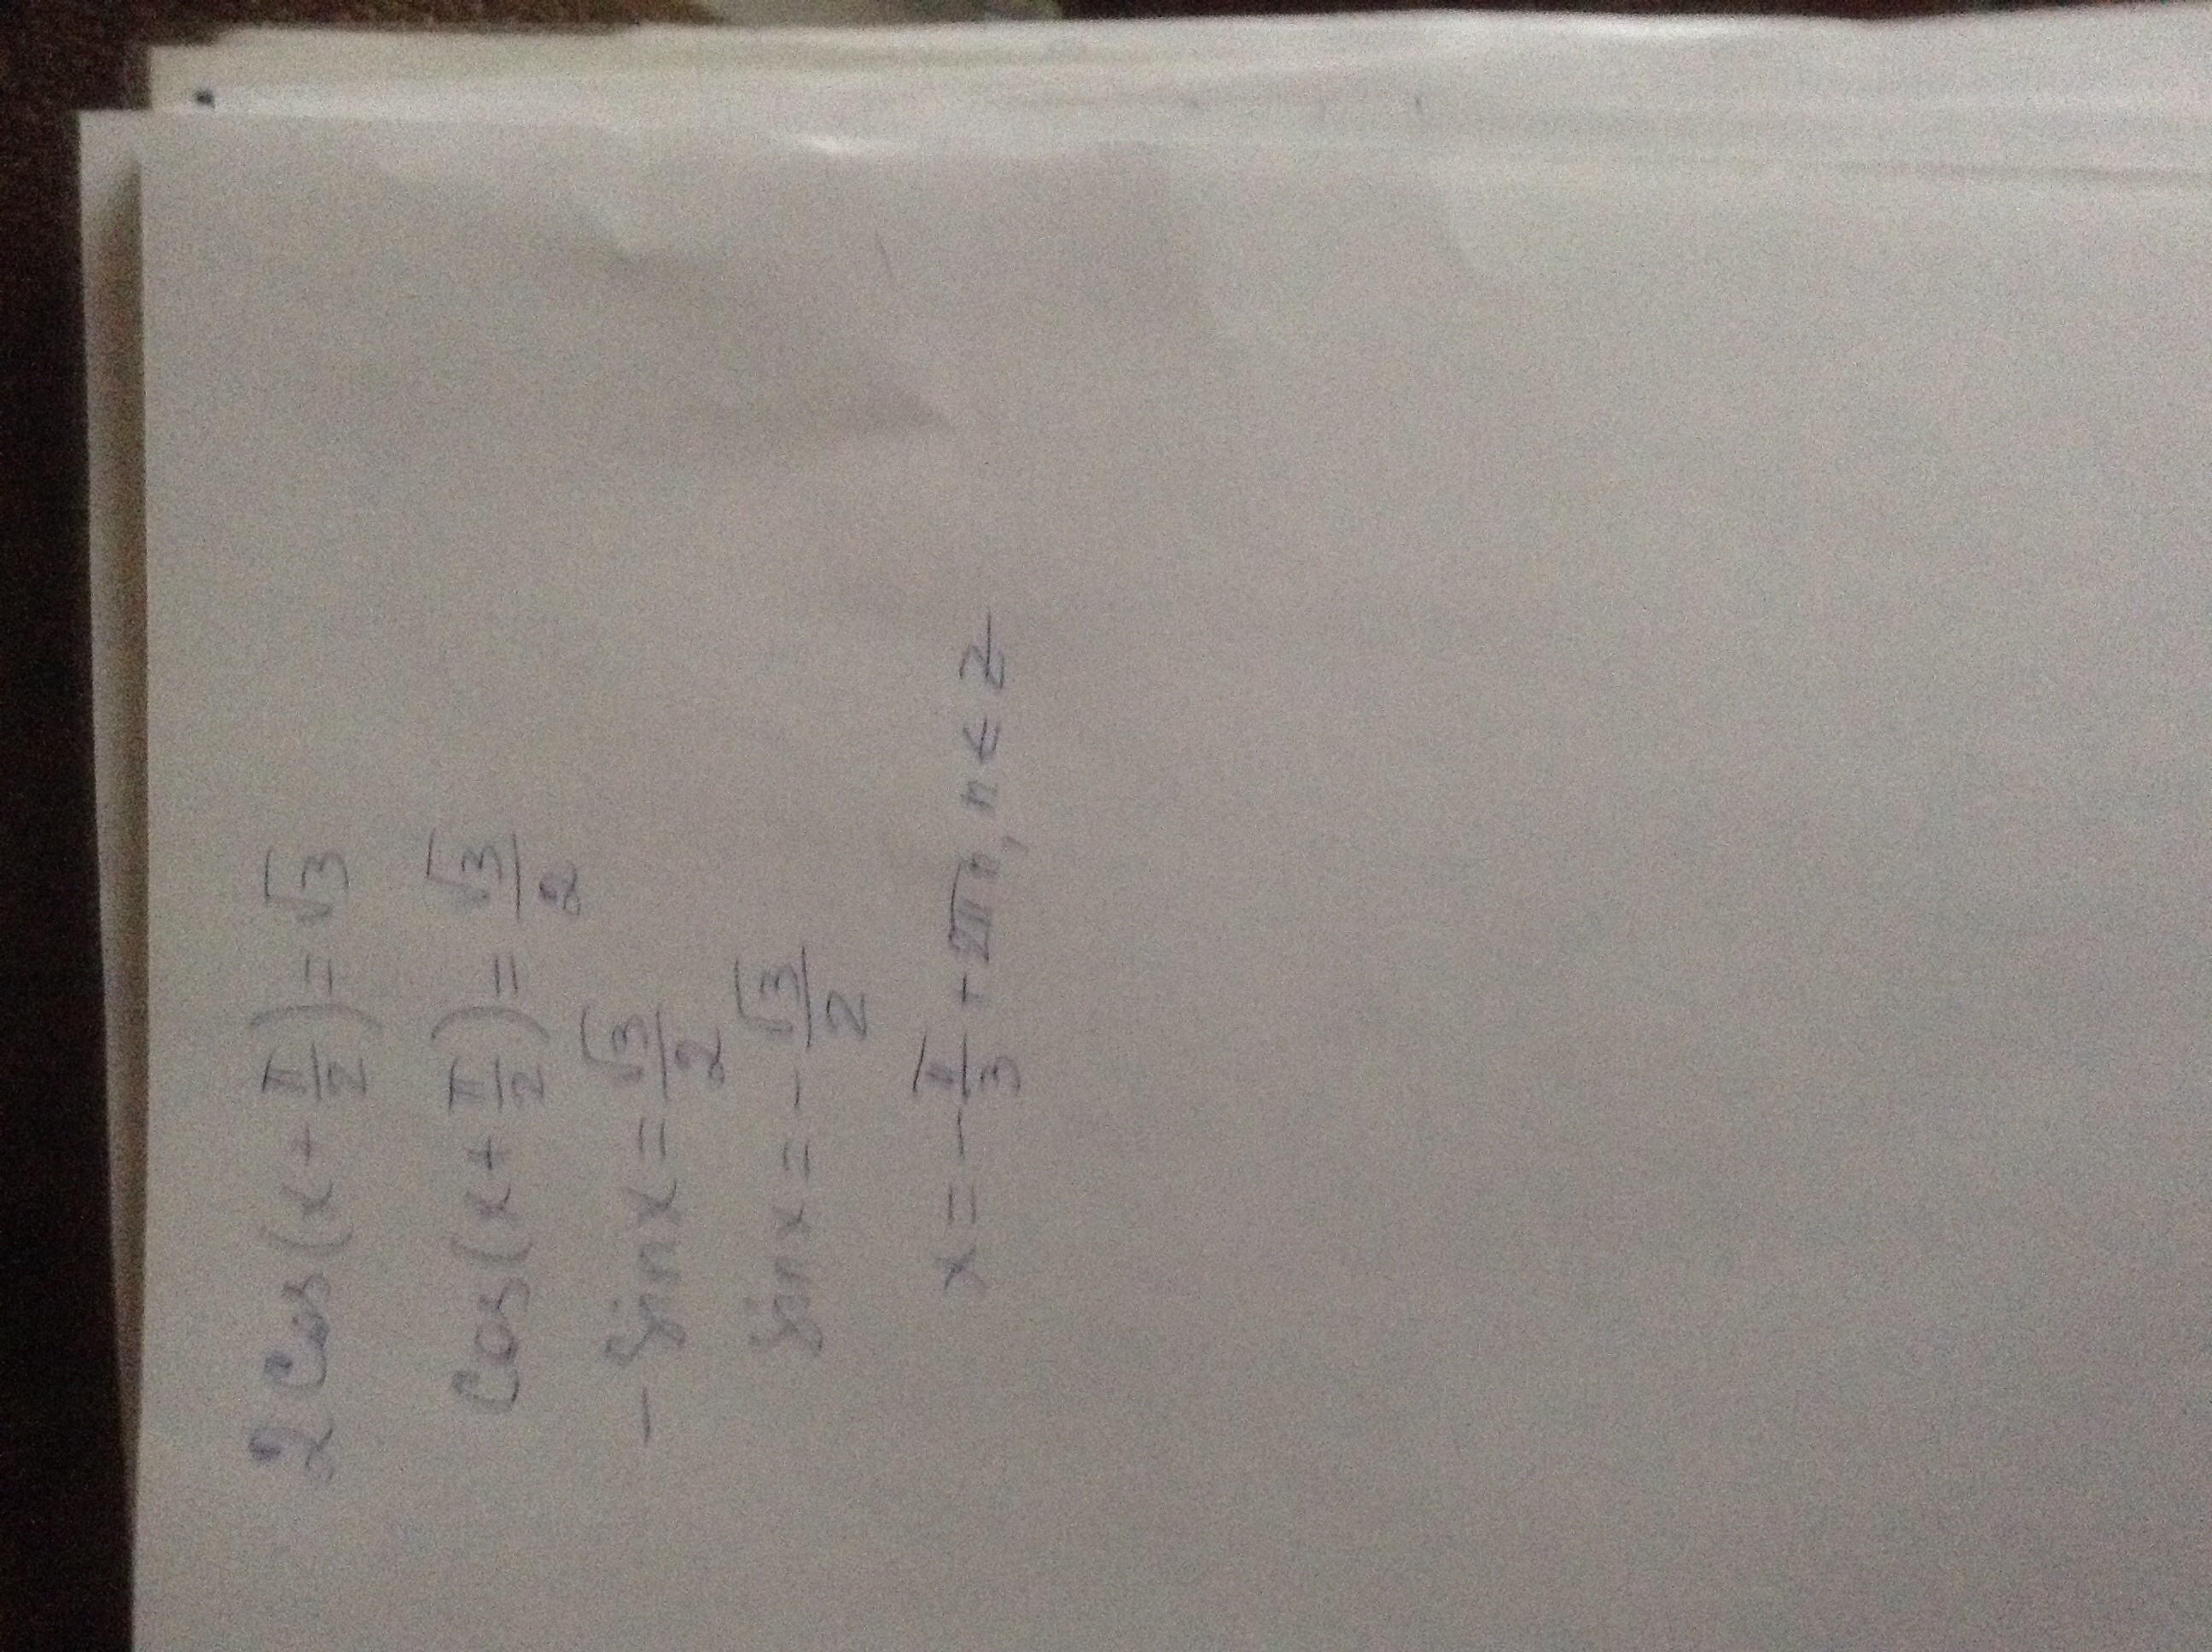 2 cos(x + π/2) = √3
cos(x + π/2) = √3/2
- sin x = √3/2
sin x = - √3/2
x = - π/3 + 2πn, n ∈ Z